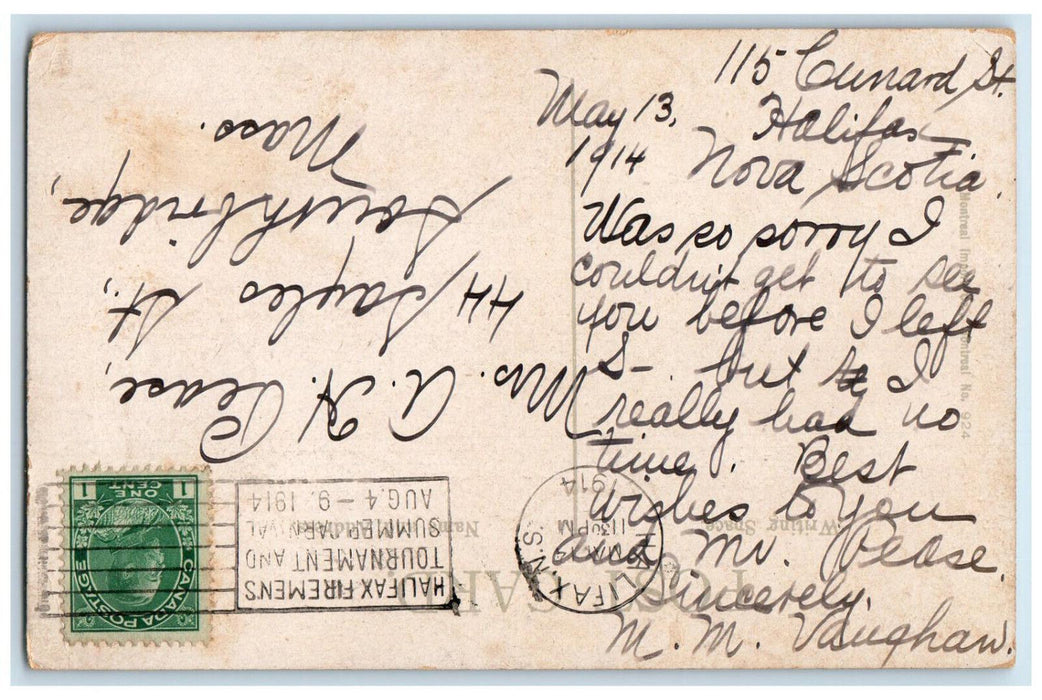 115 Cunard St.
Halifax
Nova Scotia.
May 13,
1914
Was so sorry I
couldn't get to see
you before I left
S- but I
really had no
time. Best
wishes to you
and Mr. Pease.
Sincerely,
M. M. Vaughan.
Mrs. A. H. Pease,
44 Sayles St.,
Southbridge,
Mass.
POST CARD
Writing Space
Montreal No. 924
HALIFAX
N.S.
1130 PM
1914
HALIFAX FIREMENS
TOURNAMENT AND
SUMMER CARNIVAL
AUG. 4-9. 1914
CANADA POSTAGE
1 ONE CENT 1